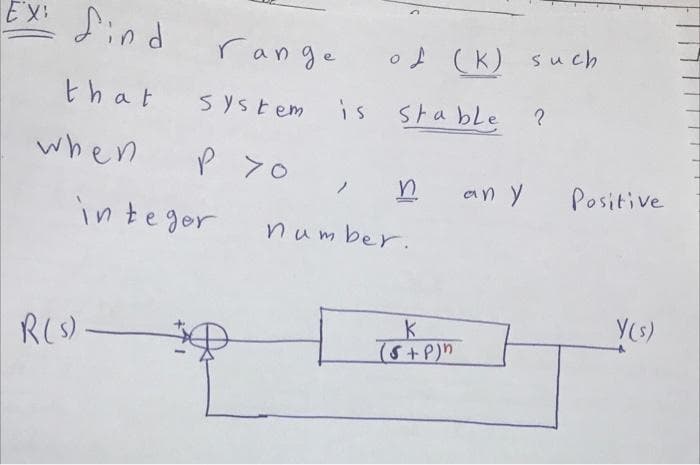 Ex: find range of (K) such
that system is stable ?
when P >0 , n any Positive
integer number.
R(s) + - K/(s+P)^n Y(s)